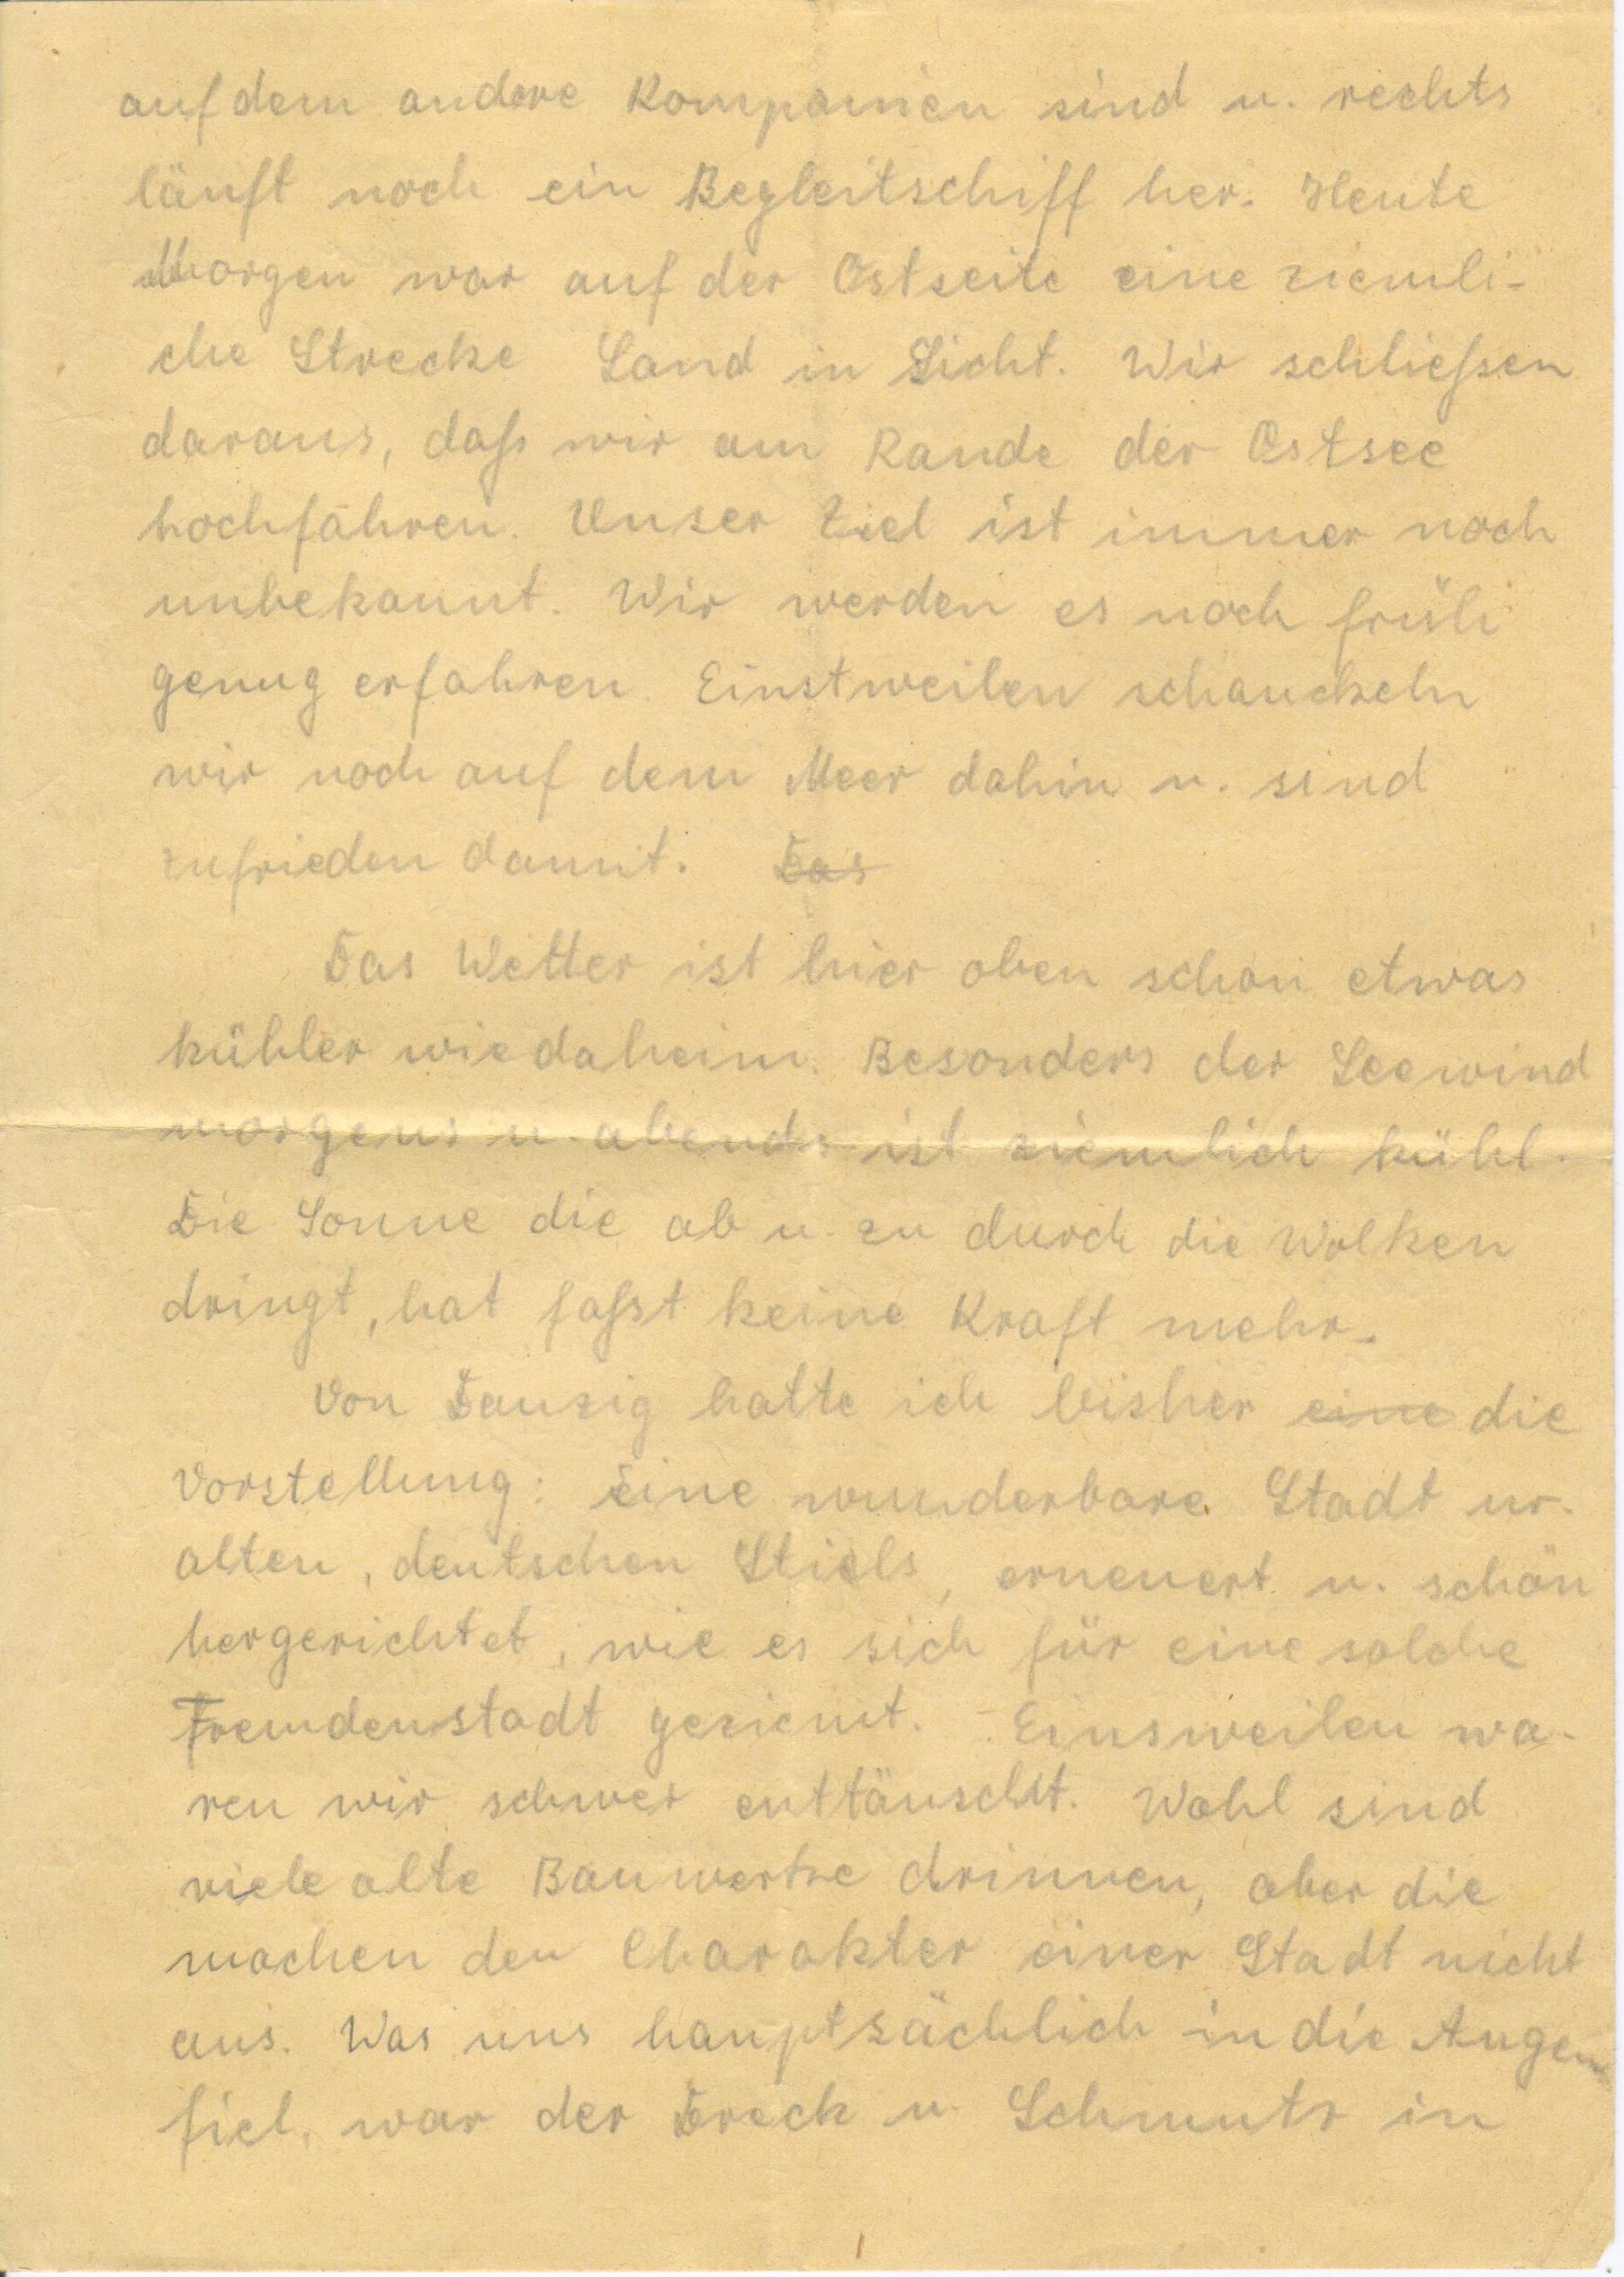 auf dem andere Kompanien sind u. rechts
läuft noch ein Begleitschiff her. Heute
Morgen war auf der Ostseite eine ziemli-
che Strecke Land in Sicht. Wir schließen
daraus, daß wir am Rande der Ostsee
hochfahren. Unser Ziel ist immer noch
unbekannt. Wir werden es noch früh
genug erfahren. Einstweilen schauckeln
wir noch auf dem Meer dahin u. sind
zufrieden damit. Das
Das Wetter ist hier oben schon etwas
kühler wie daheim. Besonders der Seewind
morgens u. abends ist ziemlich kühl.
Die Sonne die ab u. zu durch die Wolken
dringt, hat faßt keine Kraft mehr.
Von Danzig hatte ich bisher eine die
Vorstellung: Eine wunderbare Stadt ur-
alten, deutschen Stiels, erneuert u. schön
hergerichtet, wie es sich für eine solche
Fremdenstadt geziemt. - Einsweilen wa-
ren wir schwer enttäuscht. Wohl sind
viele alte Bauwerke drinnen, aber die
machen den Charakter einer Stadt nicht
aus. Was uns hauptsächlich in die Augen
fiel, war der Dreck u. Schmutz in